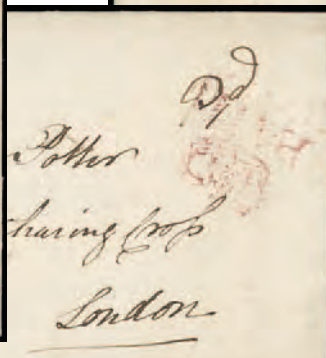 Pd
Potter
haring Cross
London